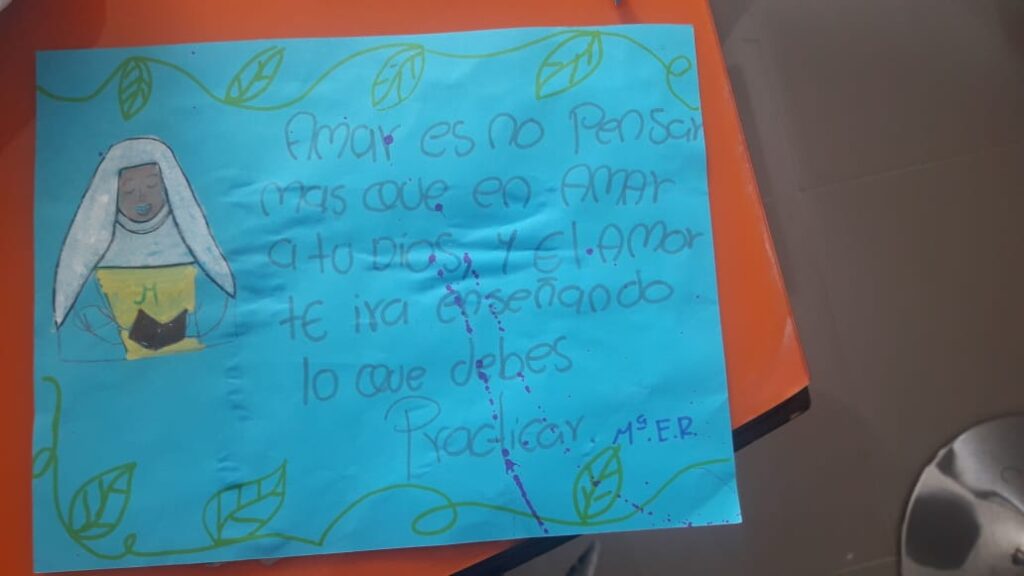 Amar es no Pensar
mas que en AMAR
a tu Dios, y El Amor
te ira enseñando
lo que debes
Practicar. Mª.E.R
M